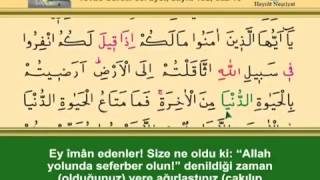 Hayrât Neşriyat
يَٓا اَيُّهَا الَّذٖينَ اٰمَنُوا مَا لَكُمْ اِذَا قٖيلَ لَكُمُ انْفِرُوا
فٖي سَبٖيلِ اللّٰهِ اثَّاقَلْتُمْ اِلَى الْاَرْضِ اَرَضٖيتُمْ
بِالْحَيٰوةِ الدُّنْيَا مِنَ الْاٰخِرَةِ فَمَا مَتَاعُ الْحَيٰوةِ الدُّنْيَا
Ey îmân edenler! Size ne oldu ki: “Allah
yolunda seferber olun!” denildiği zaman
(olduğunuz) yere ağırlaştınız (çakılıp